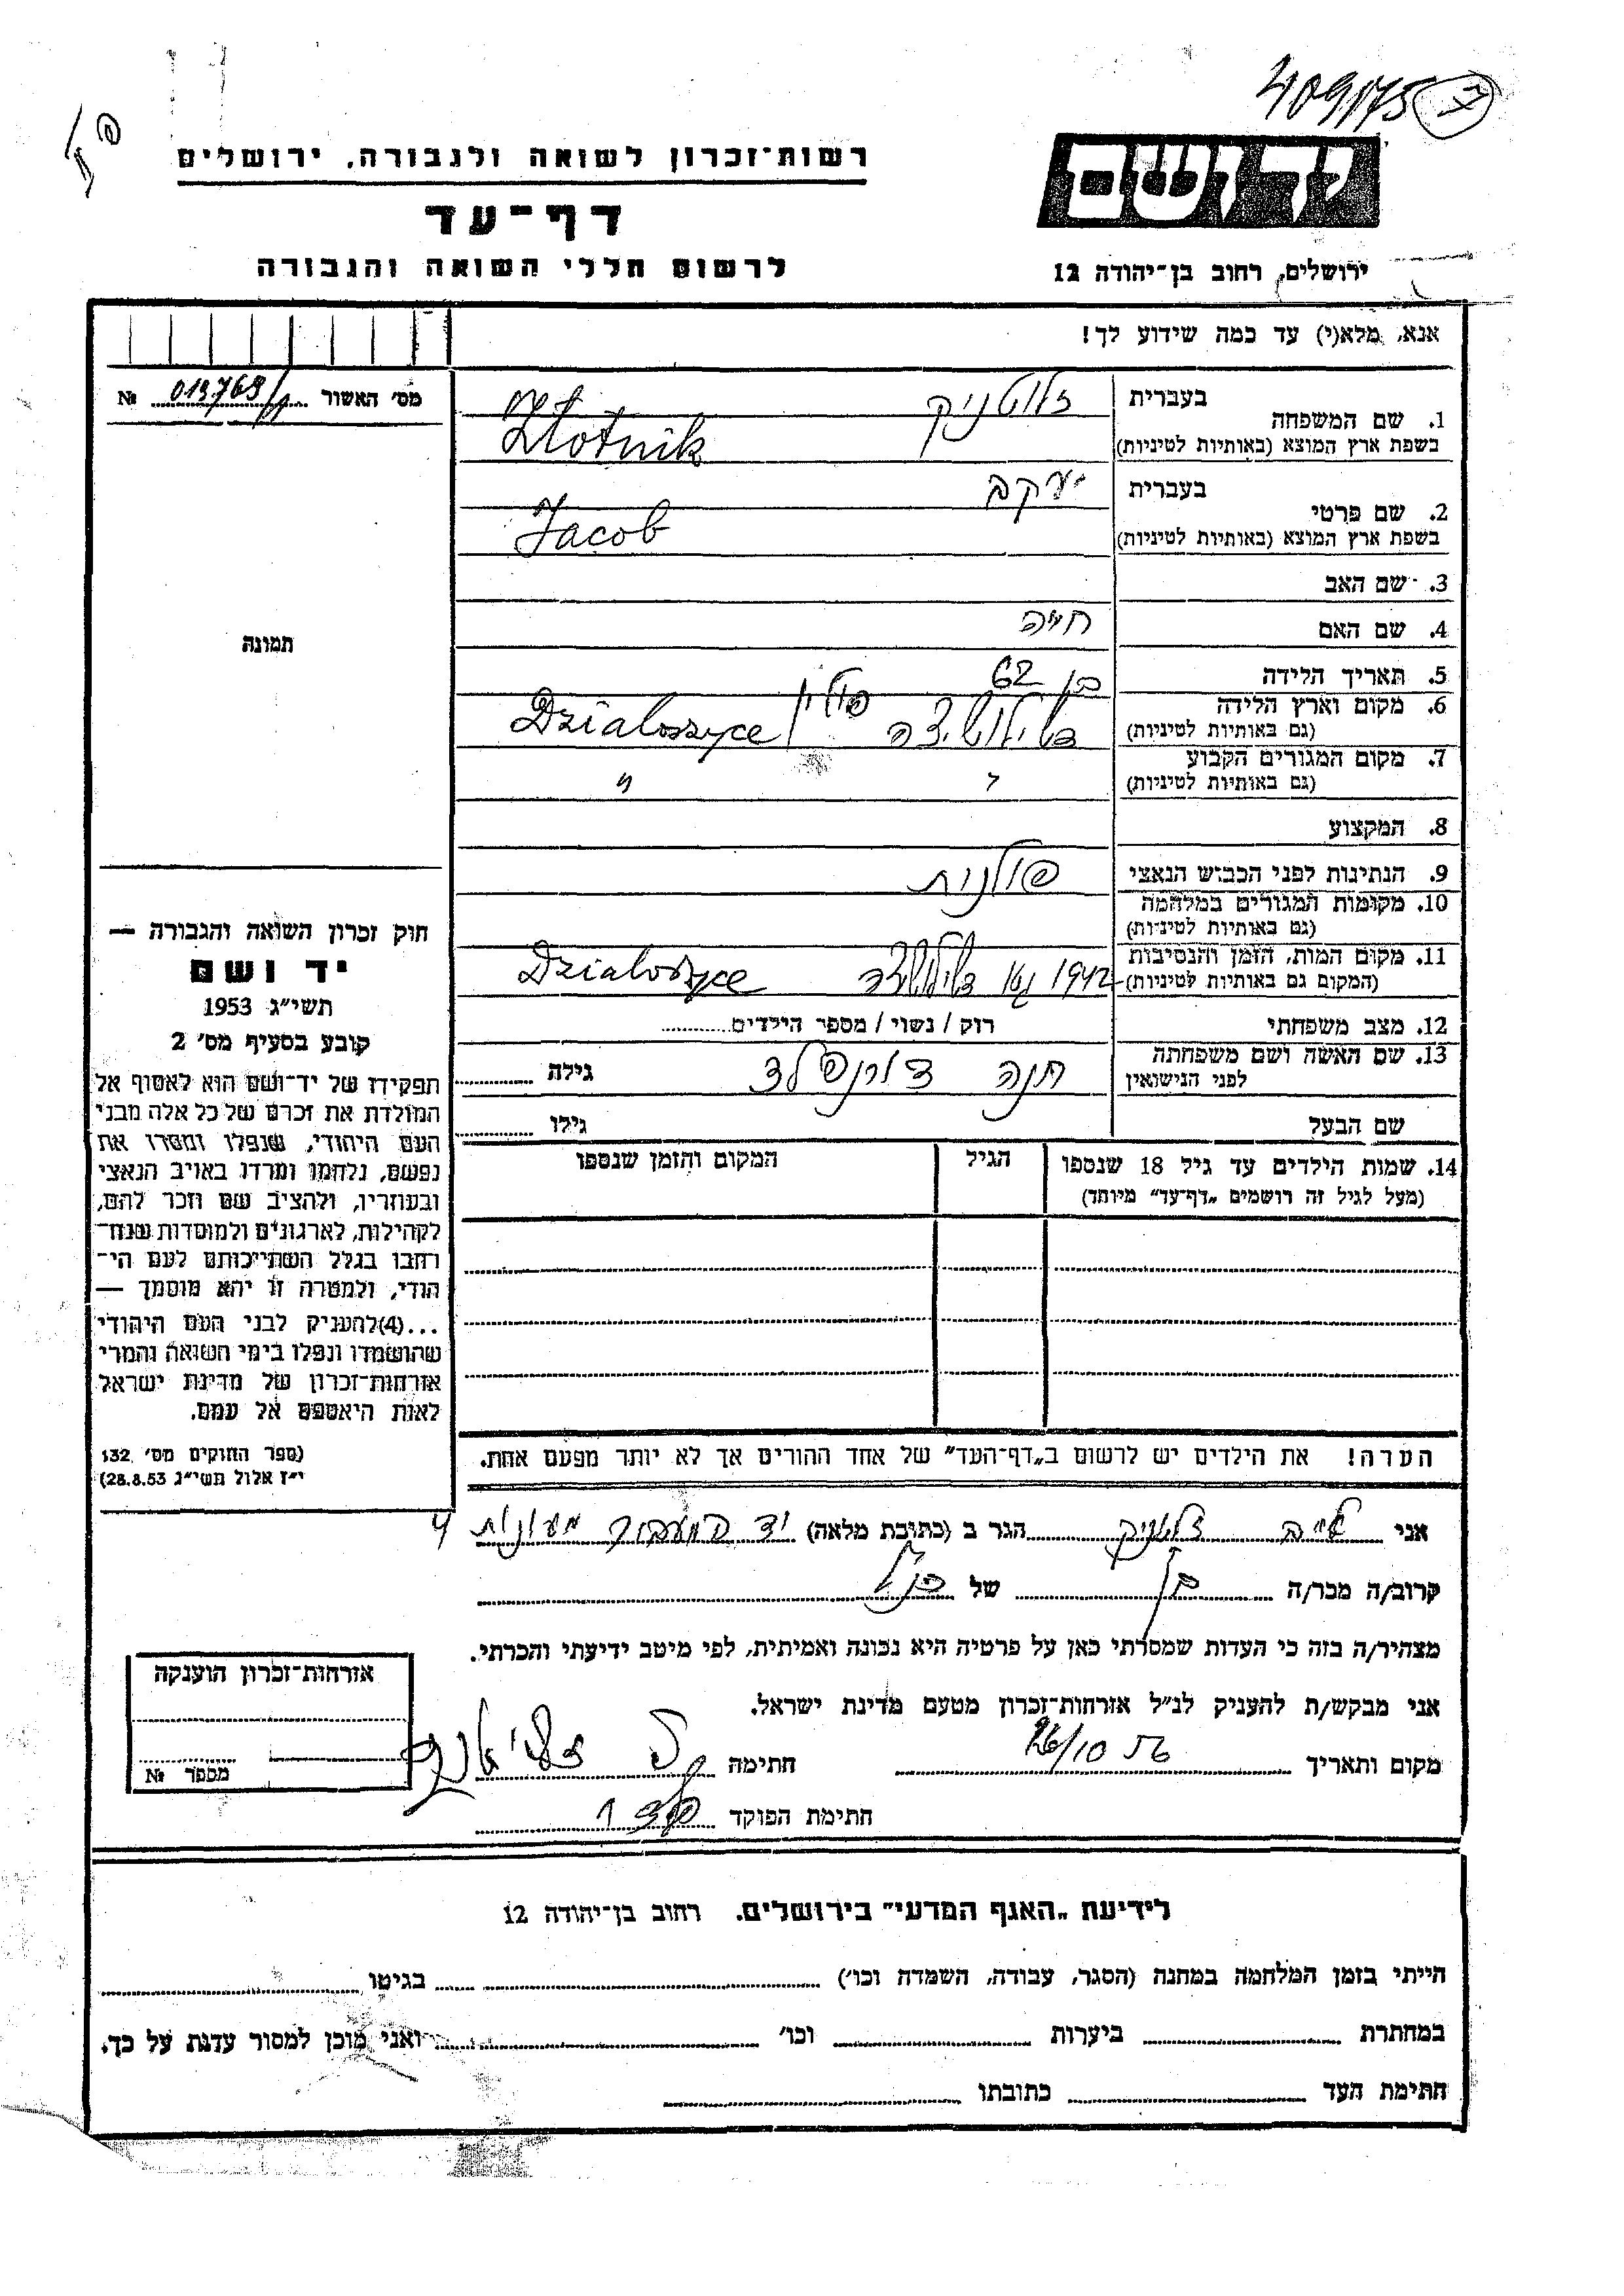 409/175
רשות-זכרון לשואה ולגבורה, ירושלים
דף-עד
לרשום חללי השואה והגבורה
יד ושם
ירושלים, רחוב בן-יהודה 12
אנא, מלא(י) עד כמה שידוע לך!
מס' האשור 013769/ №
1. שם המשפחה
בעברית זלוטניק
בשפת ארץ המוצא (באותיות לטיניות) Złotnik
2. שם פרטי
בעברית יעקב
בשפת ארץ המוצא (באותיות לטיניות) Jacob
3. שם האב
4. שם האם חיה
5. תאריך הלידה בן 62
6. מקום וארץ הלידה
(גם באותיות לטיניות) פולין Dzialoszyce
7. מקום המגורים הקבוע
(גם באותיות לטיניות) " "
8. המקצוע
9. הנתינות לפני הכבוש הנאצי פולנית
10. מקומות המגורים במלחמה
(גם באותיות לטיניות)
11. מקום המות, הזמן והנסיבות
(המקום גם באותיות לטיניות) 1942 Dzialoszyce
12. מצב משפחתי רוק / נשוי / מספר הילדים
13. שם האשה ושם משפחתה
לפני הנישואין חנה גילה
שם הבעל גילו
14. שמות הילדים עד גיל 18 שנספו
(מעל לגיל זה רושמים „דף-עד” מיוחד)
הגיל
המקום והזמן שנספו
תמונה
חוק זכרון השואה והגבורה —
יד ושם
תשי"ג 1953
קובע בסעיף מס' 2
תפקידו של יד-ושם הוא לאסוף אל
המולדת את זכרם של כל אלה מבני
העם היהודי, שנפלו ומסרו את
נפשם, נלחמו ומרדו באויב הנאצי
ובעוזריו, ולהציב שם וזכר להם,
לקהילות, לארגונים ולמוסדות שנח-
רחבו בגלל השתייכותם לעם הי-
הודי, ולמטרה זו יהא מוסמך —
...(4)להעניק לבני העם היהודי
שהושמדו ונפלו בימי השואה והמרי
אזרחות-זכרון של מדינת ישראל
לאות היאספם אל עמם.
(ספר החוקים מס' 132,
י"ז אלול תשי"ג 28.8.53)
הערה! את הילדים יש לרשום ב„דף-העד” של אחד ההורים אך לא יותר מפעם אחת.
אני זלוטניק הגר ב (כתובת מלאה) יד המעביר מעונות 4
קרוב/ה מכר/ה בן של הנ"ל
מצהיר/ה בזה כי העדות שמסרתי כאן על פרטיה היא נכונה ואמיתית, לפי מיטב ידיעתי והכרתי.
אני מבקש/ת להעניק לנ"ל אזרחות-זכרון מטעם מדינת ישראל.
מקום ותאריך 26/10 חתימה
חתימת הפוקד
אזרחות-זכרון הוענקה
מספר №
לידיעת „האגף המדעי” בירושלים. רחוב בן-יהודה 12
הייתי בזמן המלחמה במחנה (הסגר, עבודה, השמדה וכו') בגיטו
במחתרת ביערות וכו' ואני מוכן למסור עדות על כך.
חתימת העד כתובתו